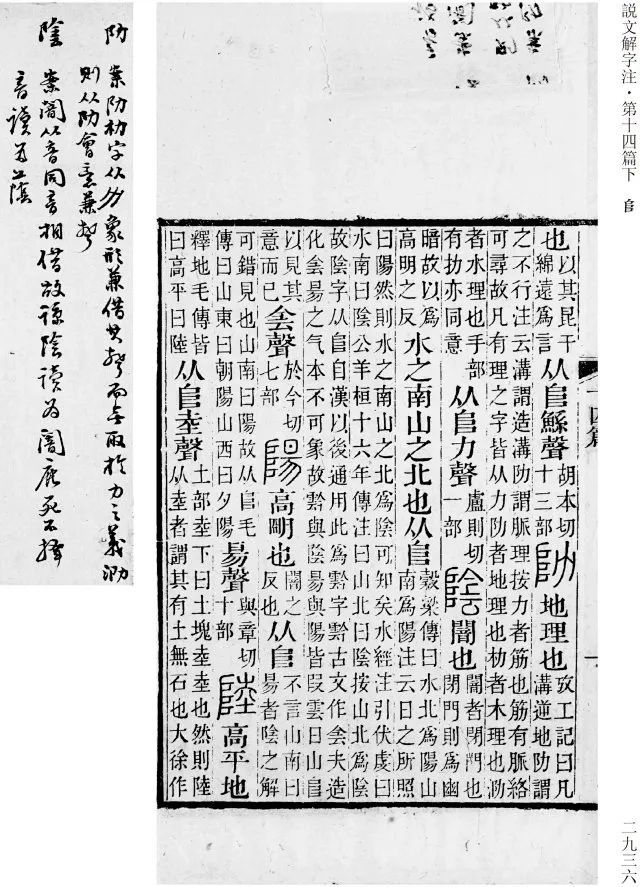 說文解字注・第十四篇下 𨸏
也以其昆干綿遠爲言从𨸏鯀聲胡本切十三部阞地理也攷工記曰凡溝逆地阞謂
之不行注云溝謂造溝阞謂脈理按力者筋也筋有脈絡可尋故凡有理之字皆从力阞者地理也朸者木理也泐
者水理也手部有扐亦同意从𨸏力聲盧則切一部陰闇也闇者閉門也閉門則爲幽
暗故以爲高明之反水之南山之北也从𨸏穀梁傳曰水北爲陽山南爲陽注云日之所照
曰陽然則水之南山之北爲陰可知矣水經注引伏虔曰水南曰陰公羊桓十六年傳注曰山北曰陰按山北爲陰
故陰字从𨸏自漢以後通用此爲霒字霒古文作侌夫造化侌昜之气本不可象故霒與陰昜與陽皆叚雲日山𨸏
以見其意而已侌聲於今切七部陽高朙也闇之反也从𨸏不言山南曰昜者陰之解
可錯見也山南曰陽故从𨸏毛傳曰山東曰朝陽山西曰夕陽昜聲與章切十部陸高平地
釋地毛傳皆曰高平曰陸从𨸏坴聲土部坴下曰土塊坴坴也然則陸从坴者謂其有土無石也大徐作
二九三六
阞 案阞朸字从力象形兼借其聲而無取於力之義泐
則从阞會意兼聲
陰 案闇从音同音相借故諒陰讀爲闇鹿死不擇
音讀爲陰